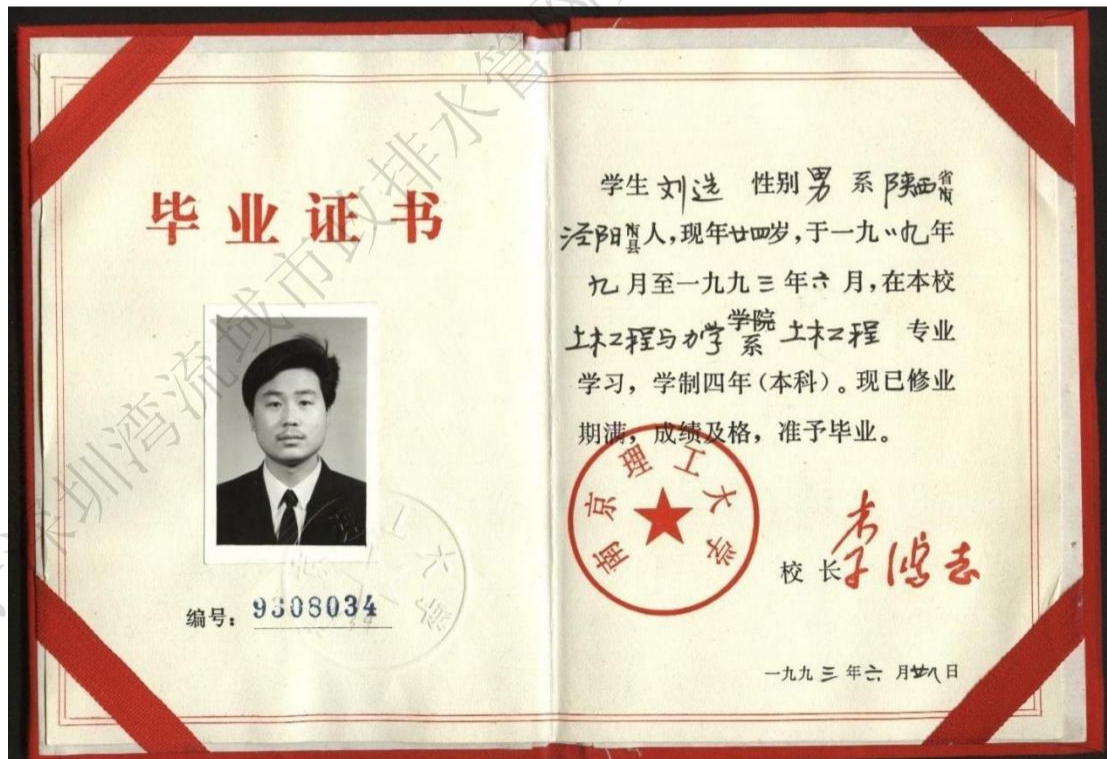 毕业证书
编号：9308034
学生 刘选 性别 男 系 陕西省
泾阳县人，现年廿四岁，于一九八九年
九月至一九九三年六月，在本校
土木工程与力学学院系 土木工程 专业
学习，学制四年（本科）。现已修业
期满，成绩及格，准予毕业。
南京理工大学
校长 李鸿志
一九九三年六月廿八日
深圳湾流域市政排水管网